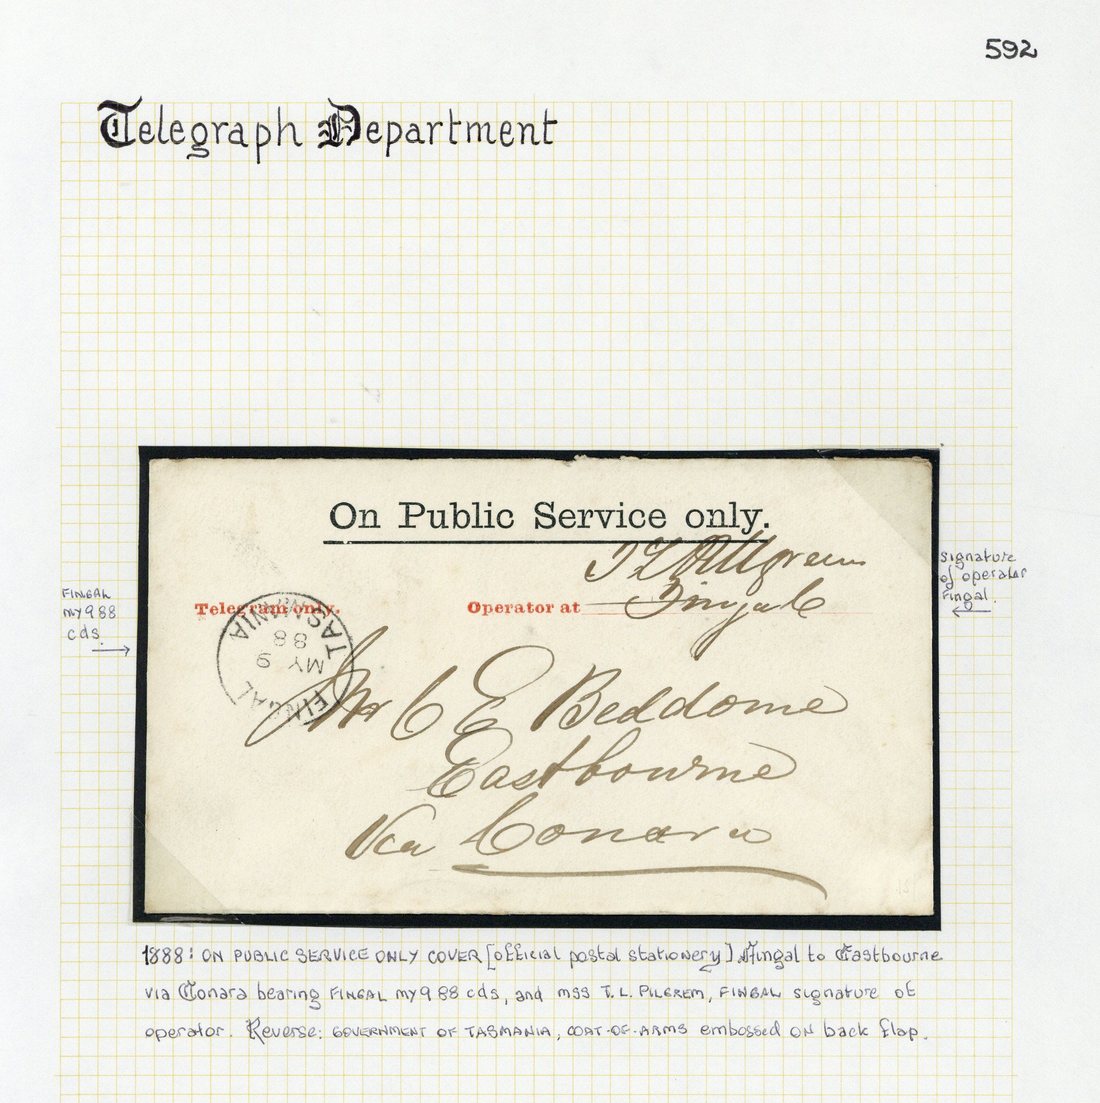 592
Telegraph Department
On Public Service only.
Telegram only.
Operator at
Fingal
FINGAL
TASMANIA
MY 9
88
Mr C E Beddome
Eastbourne
Via Conara
FINGAL
MY 9 88
cds.
signature
of operator
Fingal.
1888: ON PUBLIC SERVICE ONLY COVER [official postal stationery] Fingal to Eastbourne
via Conara bearing FINGAL MY 9 88 cds, and mss T.L. PILGREM, FINGAL signature of
operator. Reverse: GOVERNMENT OF TASMANIA, COAT-OF-ARMS embossed ON back flap.